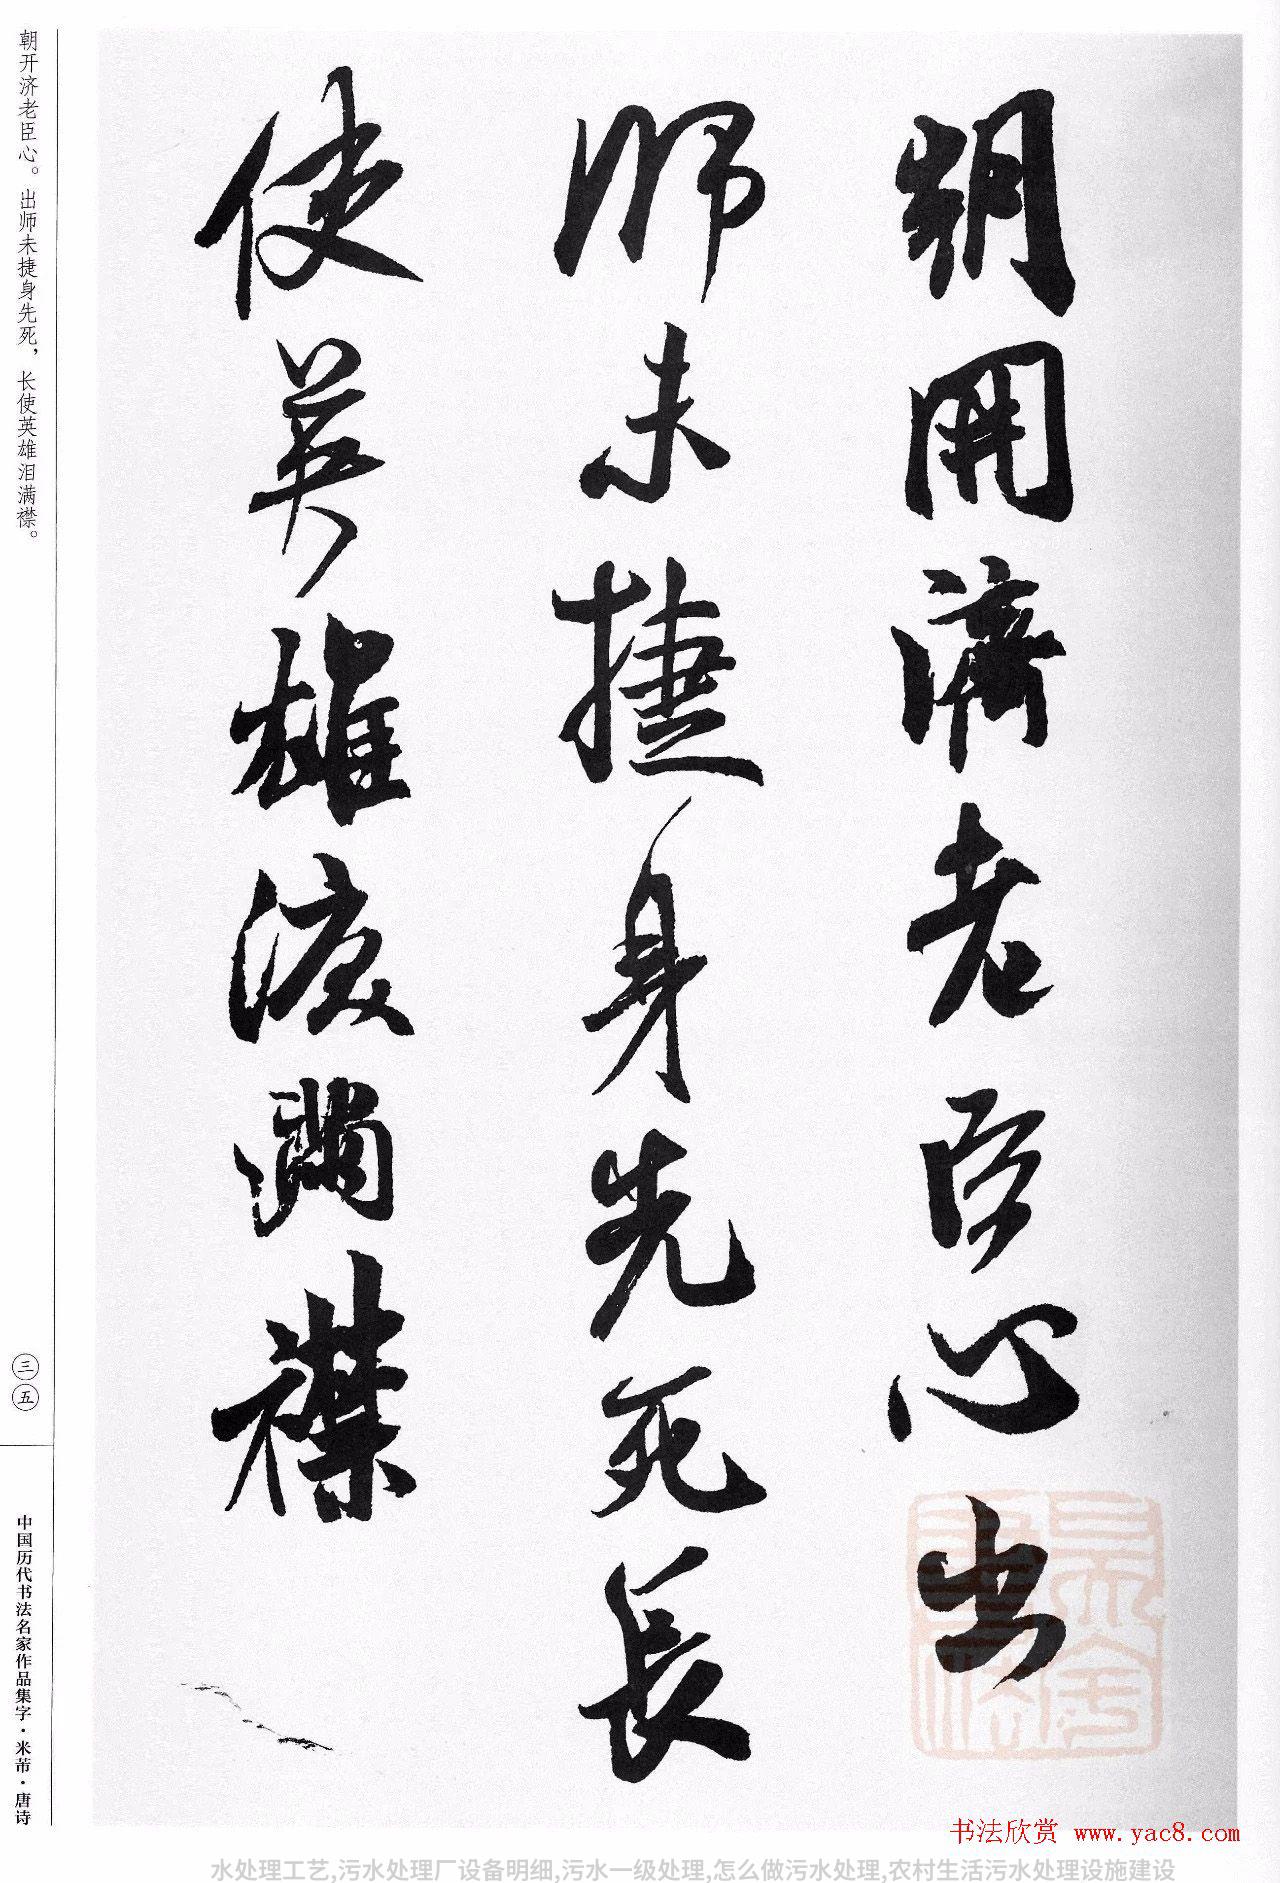 朝開濟老臣心出
師未捷身先死長
使英雄淚滿襟
朝开济老臣心。出师未捷身先死，长使英雄泪满襟。
三五
中国历代书法名家作品集字·米芾·唐诗
书法欣赏 www.yac8.com
水处理工艺,污水处理厂设备明细,污水一级处理,怎么做污水处理,农村生活污水处理设施建设